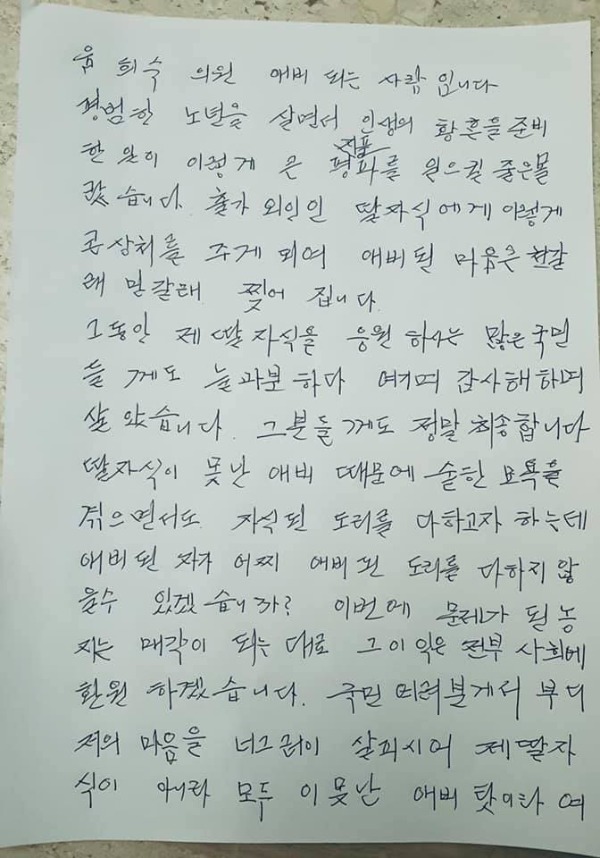 윤 희숙 의원 애비 되는 사람 입니다
평범한 노년을 살면서 인생의 황혼을 준비
지표
한 일이 이렇게 큰 평파를 일으킬 줄은몰
랐 습니다. 출가 외인인 딸자식에게 이렇게
큰상처를 주게 되여 애비된 마음은 천갈
래 만갈래 찢어 집니다.
그동안 제 딸 자식을 응원 하시는 많은국민
들 께도 늘과분 하다 여기며 감사해하며
살 았습니다. 그분들께도 정말 죄송합니다
딸자식이 못난 애비 때문에 숱한 모욕을
겪으면서도 자식된 도리를 다하고자 하는데
애비된 자가 어찌 애비된 도리를 다하지 않
을수 있겠 습니까? 이번에 문제가 될 농
지는 매각이 되는 대로 그 이익은 전부 사회에
환원 하겠습니다. 국민 여러분게서 부디
저의 마음을 너그러이 살피시어 제딸자
식이 아니라 모두 이 못난 애비 탓이라 여